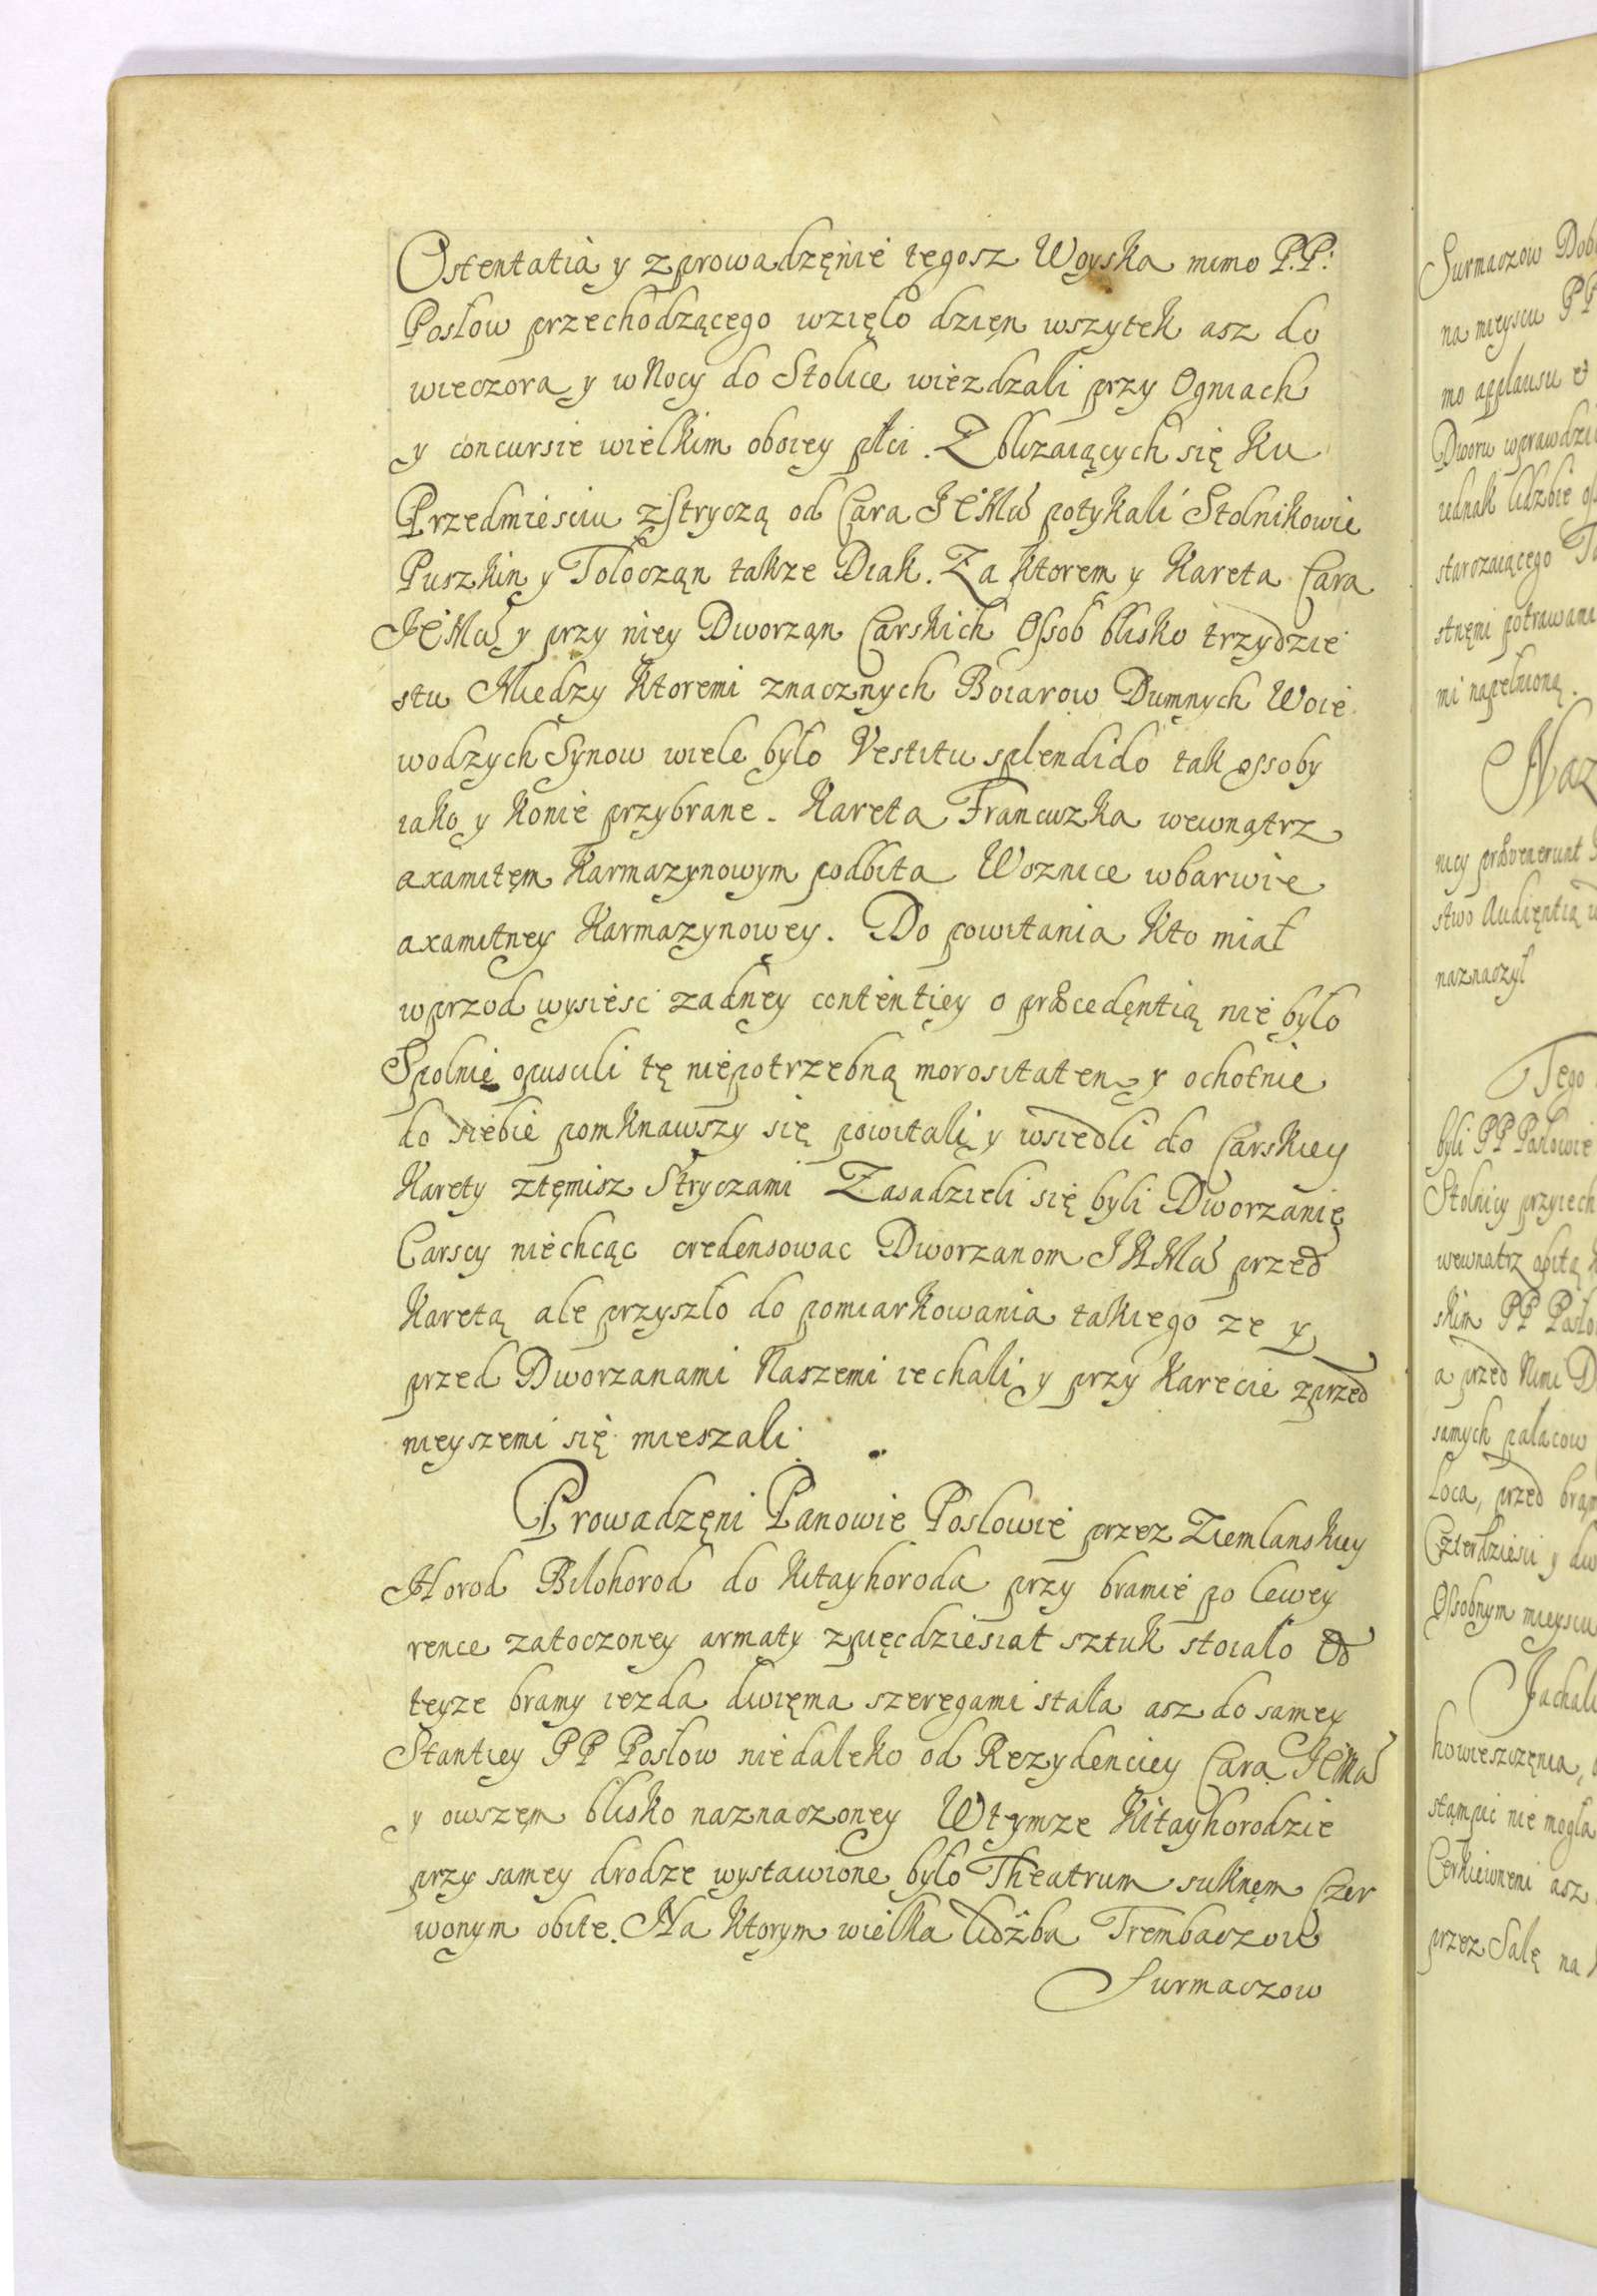 Ostentatia y zprowadzęnie tegosz Woyska mimo P.P:
Posłow przechodzącego wzięło dzięn wszytek asz do
wieczora y w Nocy do Stolice wiezdzali przy Ogniach
y concursie wielkim oboiey płci. Zblizaiących się ku
Przedmiesciu z Stryczą od Cara JEMći potykali Stolnikowie
Puszkin y Tolocząn takze Diak. Za ktorem y Kareta Cara
JEMći y przy niey Dworząn Carskich Ossob blisko trzydzie
stu Miedzy Ktoremi znacznych Boiarow Dumnych Woie
wodzych Synow wiele było Vestitu splendido tak ossoby
iako y konie przybrane. Kareta Francuzka wewnątrz
axamitęm Karmazynowym podbita Woznice wbarwie
axamitney Karmazynowey. Do powitania Kto miał
wprzod wysiesc zadney contentiey o præcedęntią nie było
Spolnie opuscili tę niepotrzebną morositatem y ochotnie
do siebie pomknawszy się powitali y wsiedli do Carskiey
Karety ztęmisz Stryczami Zasadzieli się byli Dworzanię
Carscy niechcąc credensowac Dworzanom JKMći przed
Karetą ale przyszło do pomiarkowania takiego ze y
przed Dworzanami Naszemi iechali y przy Karecie zprzed
nieyszemi się mieszali.
Prowadzęni Panowie Posłowie przez Ziemlanskiey
Horod Bilohorod do Kitayhoroda przy bramie po lewey
rence zatoczoney armaty zpięcdziesiat sztuk stoiało Od
teyze bramy iezda dwięma szeregami stała asz do samey
Stantiey PP Posłow niedaleko od Rezydenciey Cara JEMći
y owszęm blisko naznaczoney Wtymze Kitayhorodzie
przy samey drodze wystawione było Theatrum suknęm Czer
wonym obite. Na Ktorym wielka lidźba Trembaczow
Surmaczow
Surmaczow
na mieyscu PP
mo applausu et
Dworu
iednak lidzbie
starczaiącego
stnęmi potrawami
mi napełnioną.
nicy prævenerunt
stwo Audięntią
naznaczył
Tego
byli PP Posłowie
Stolnicy
wewnatrz obitą
skim PP
a przed Nimi
samych palacow
Loca, przed
Czterdziesci y
Ossobnym mieyscu
Jachali
stąmpic nie mogła
asz
przez Salę na